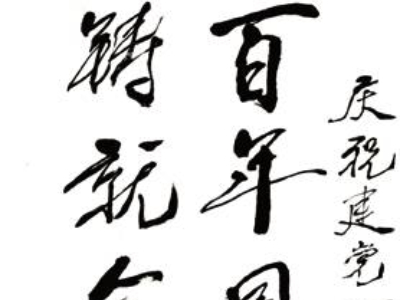 庆祝建党
百年
铸就